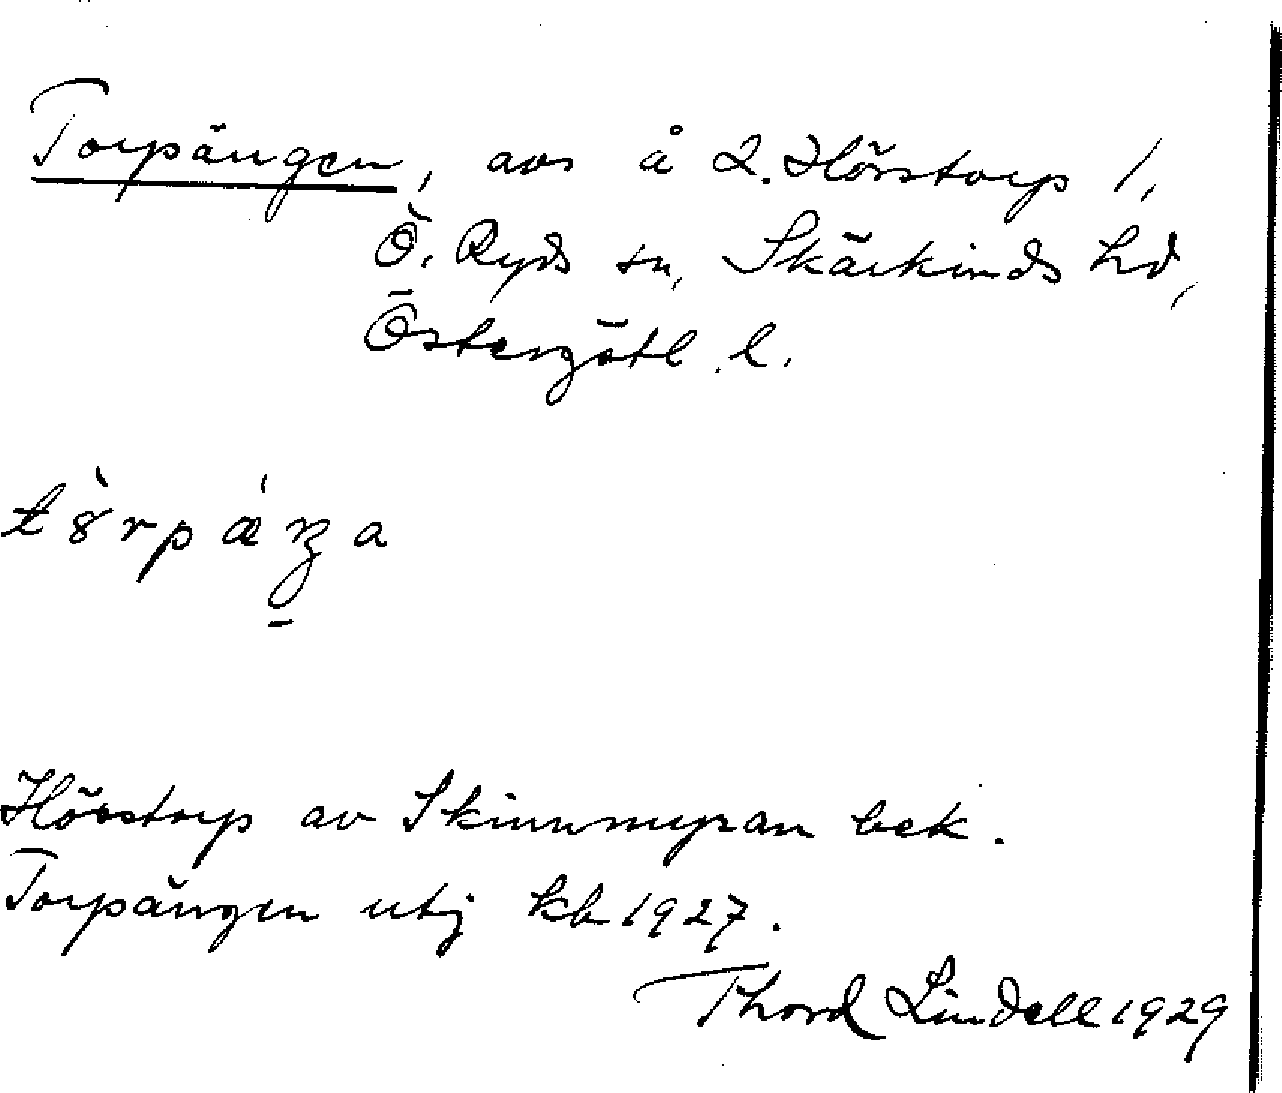 Torpängen, avs å L. Hörstorp 1,
Ö. Ryds sn, Skärkinds hd,
Östergötl. l.
Hörstorp av Skinnmyran bek.
Torpängen utj kb 1927.
Thord Lindell 1929